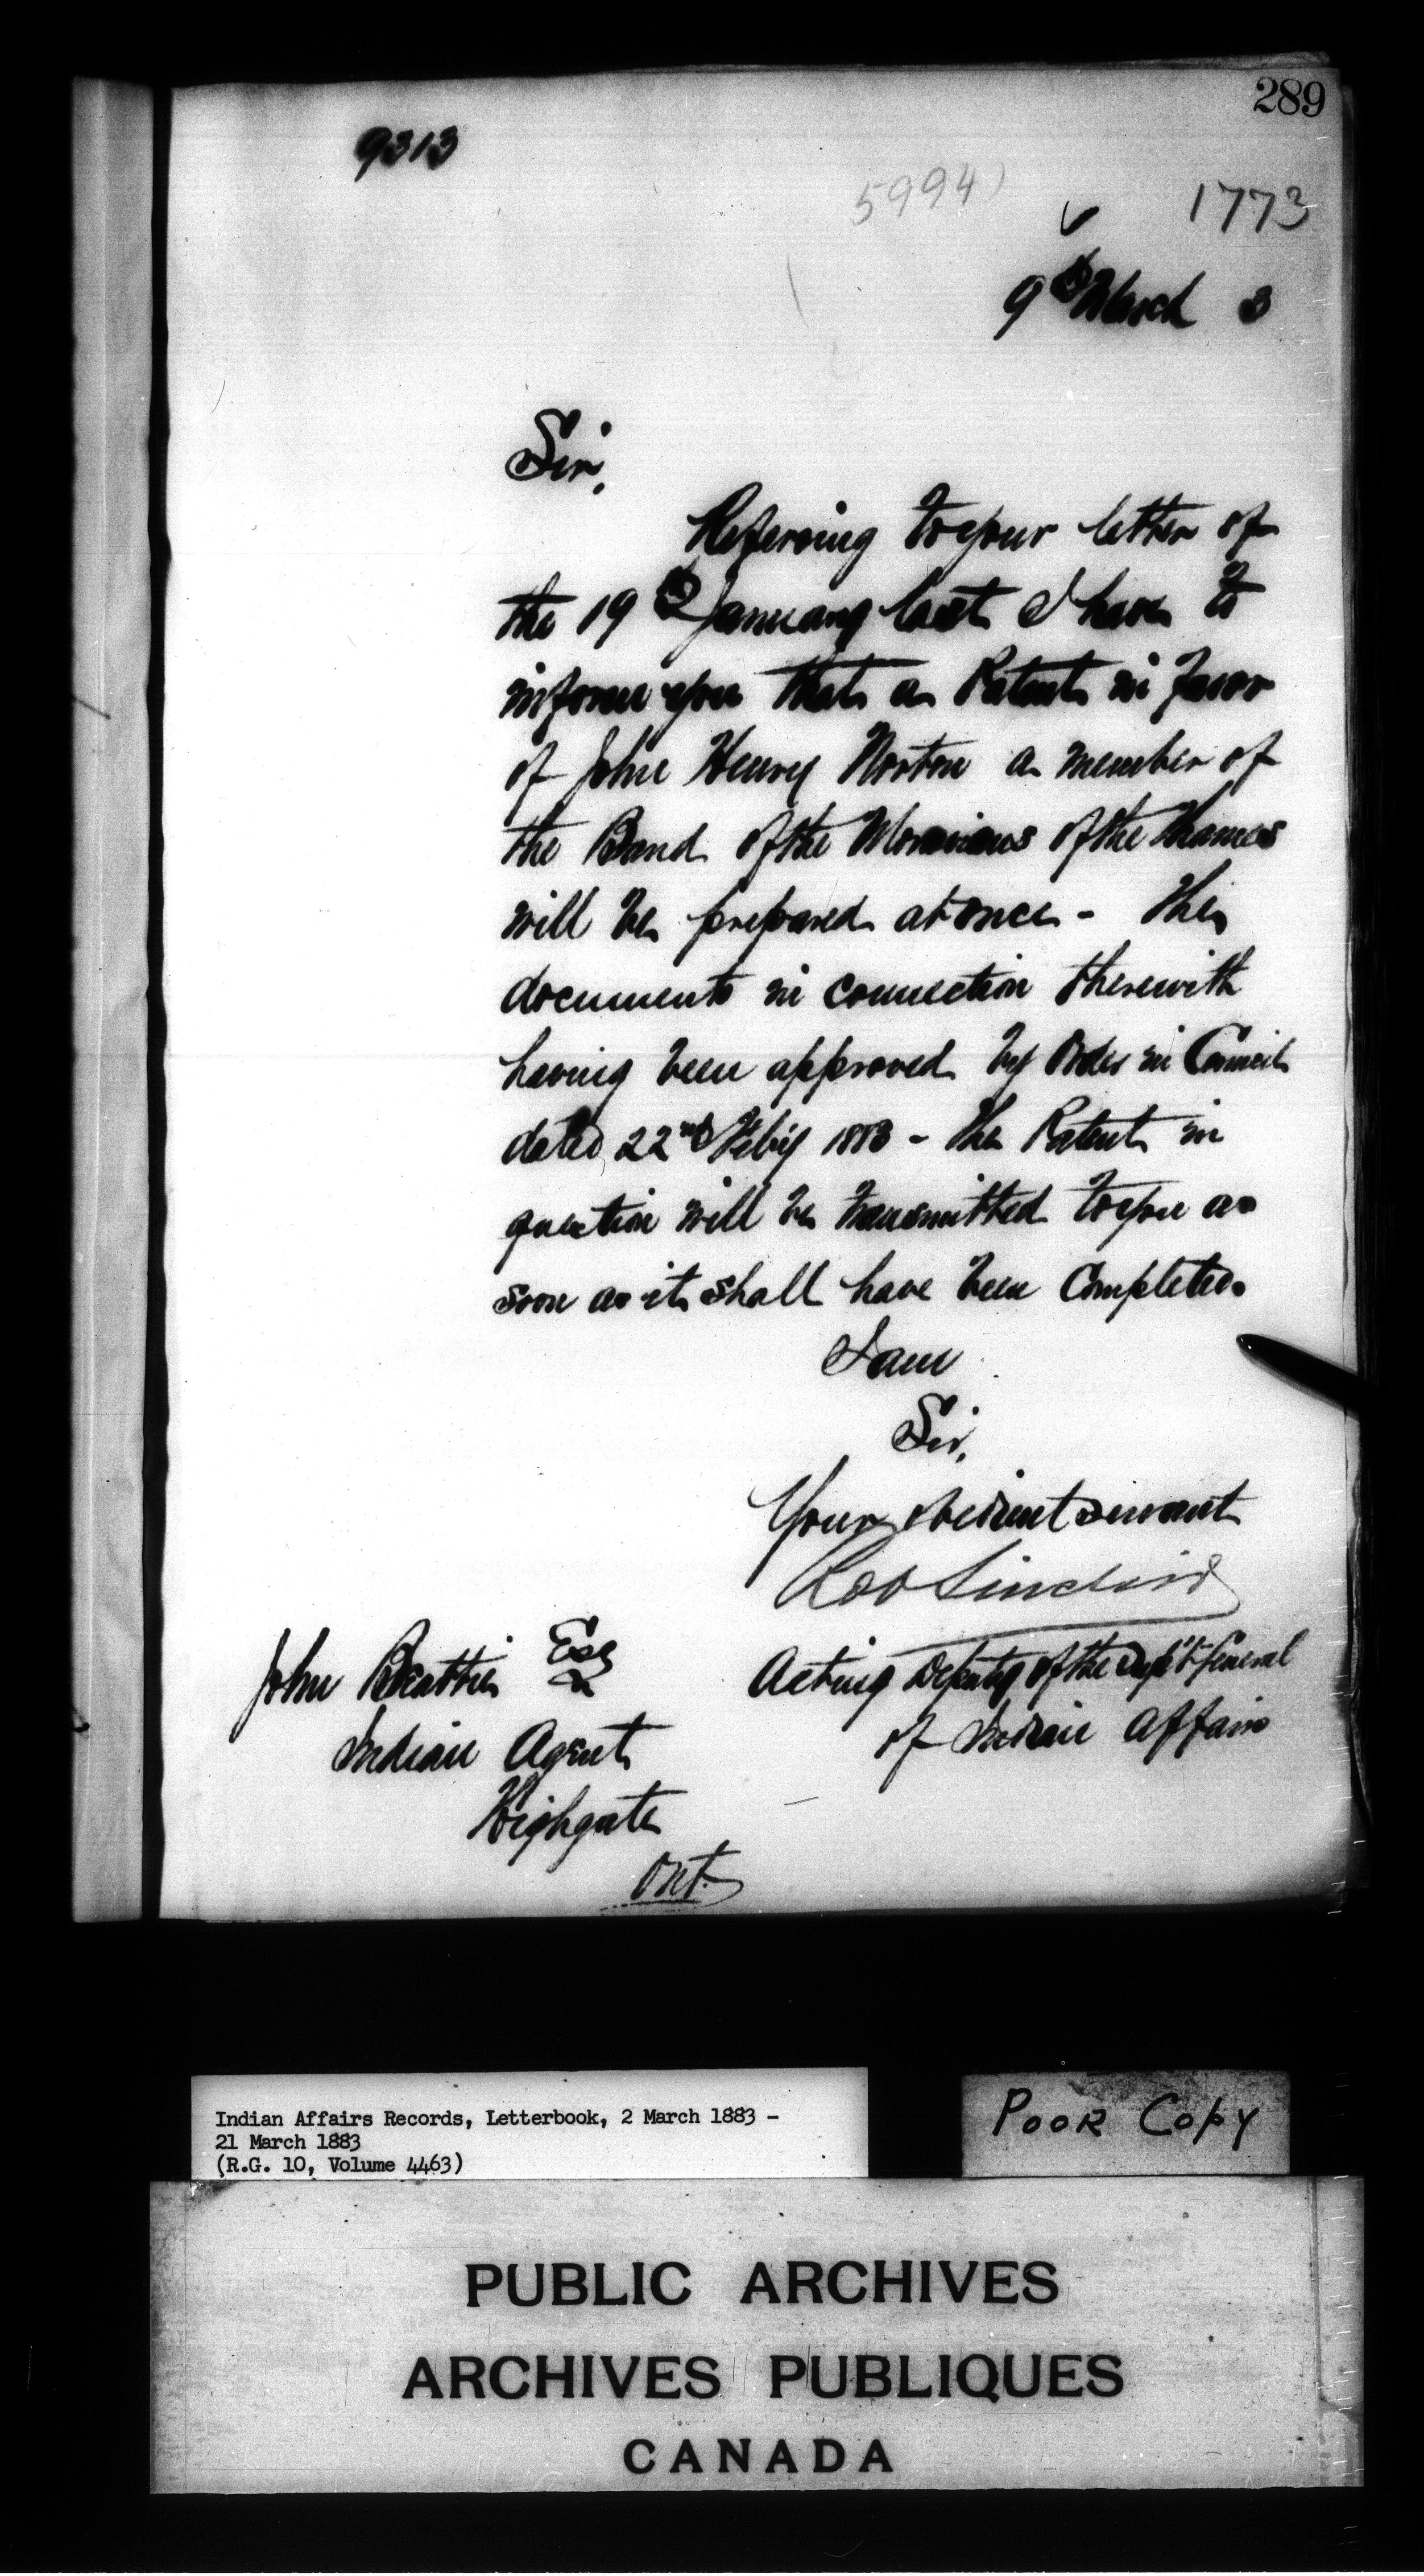 289
9313
5994)
1773
9th March 3
Sir,
Referring to your letter of
the 19th January last I have to
inform you that a Patent in favor
of John Henry Norton a member of
the Band of the Moravians of the Thames
will be prepared at once - the
documents in connection therewith
having been approved by Order in Council
dated 22nd Feby 1883 - the Patent in
question will be transmitted to you as
soon as it shall have been Completed.
I am
Sir,
Your obedient servant
Rob Sinclair
Acting Deputy of the Supt General
of Indian Affairs
John Beattie Esq
Indian Agent
Highgate
Ont.
Indian Affairs Records, Letterbook, 2 March 1883 -
21 March 1883
(R.G. 10, Volume 4463)
POOR COPY
PUBLIC ARCHIVES
ARCHIVES PUBLIQUES
CANADA